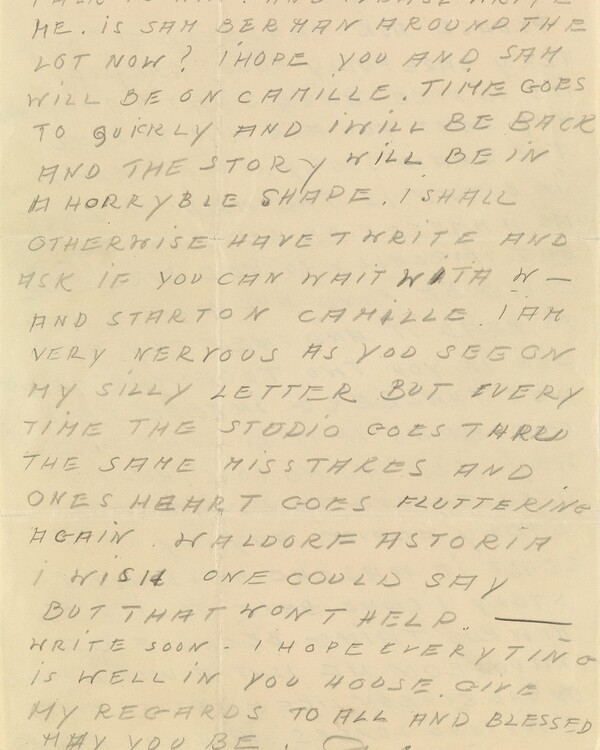 ME. IS SAM BERMAN AROUND THE
LOT NOW? I HOPE YOU AND SAM
WILL BE ON CAMILLE. TIME GOES
TO QUICKLY AND I WILL BE BACK
AND THE STORY WILL BE IN
A HORRYBLE SHAPE. I SHALL
OTHERWISE HAVE T WRITE AND
ASK IF YOU CAN WAIT WITA W—
AND START ON CAMILLE. I AM
VERY NERVOUS AS YOU SEE ON
MY SILLY LETTER BUT EVERY
TIME THE STUDIO GOES THRU
THE SAME MISSTAKES AND
ONES HEART GOES FLUTTERING
AGAIN. WALDORF ASTORIA
I WISH ONE COULD SAY
BUT THAT WONT HELP. —
WRITE SOON - I HOPE EVERYTING
IS WELL IN YOU HOUSE. GIVE
MY REGARDS TO ALL AND BLESSED
MAY YOU BE.